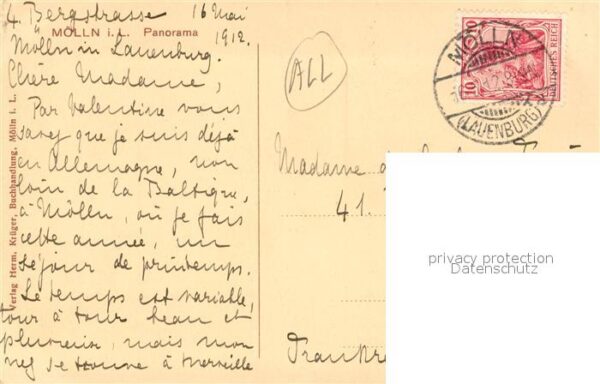 4. Bergstrasse 16 Mai
MÖLLN i. L. Panorama
Mölln in Lauenburg. 1912.
Chère Madame,
Par Valentine vous
savez que je suis déjà
en Allemagne, non
loin de la Baltique,
à Mölln, où je fais
cette année, un
séjour de printemps.
Le temps est variable,
tour à tour beau et
pluvieux, mais mon
se trouve à merveille
Verlag Herm. Krüger, Buchhandlung, Mölln i. L.
ALL
10 10
DEUTSCHES REICH
MÖLLN
(LAUENBURG)
Madame
41.
privacy protection
Datenschutz